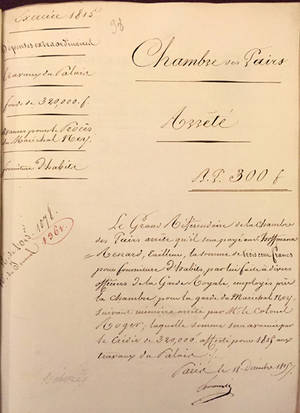 Exercice 1815
Dépenses extraordinaires
travaux du Palais
fonds de 320,000 f.
pour le Procès
du Maréchal Ney
fourniture d'habits
Chambre des Pairs
Arrêté
B.P. 300 f
Le Grand Référendaire de la Chambre
des Pairs arrête qu'il sera payé aux
Renard, tailleur, la somme de trois cent francs
pour fourniture d'habits, par lui faite à divers
officiers de la Garde Royale employés près
la Chambre pour la garde du Maréchal Ney,
suivant mémoire arrêté par M. le Colonel
Roger; laquelle somme sera
le Crédit de 320,000 affecté pour 1815 aux
travaux du Palais
Paris, le Décembre 1815